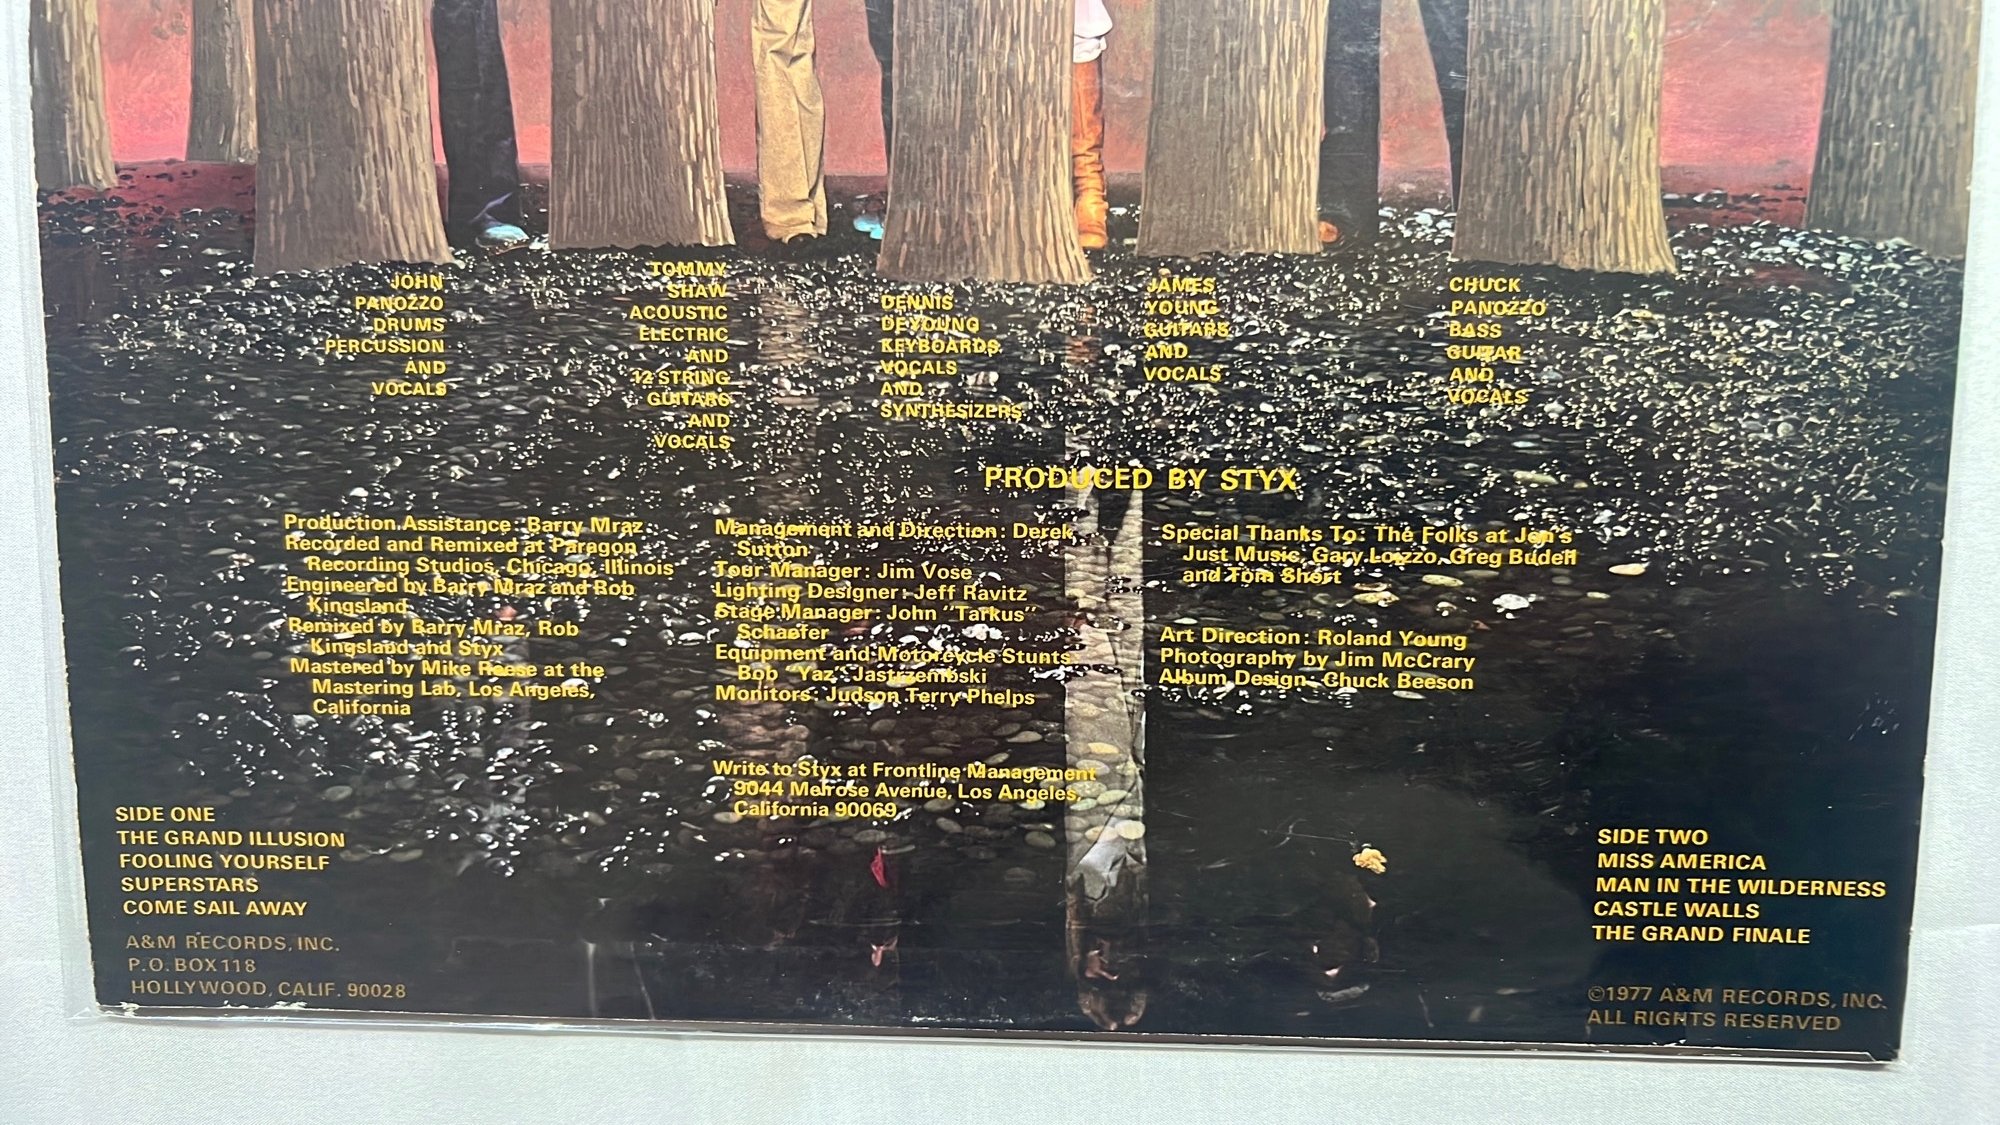 JOHN
PANOZZO
DRUMS
PERCUSSION
AND
VOCALS
TOMMY
SHAW
ACOUSTIC
ELECTRIC
AND
12 STRING
GUITARS
AND
VOCALS
DENNIS
DEYOUNG
KEYBOARDS
VOCALS
AND
SYNTHESIZERS
JAMES
YOUNG
GUITARS
AND
VOCALS
CHUCK
PANOZZO
BASS
GUITAR
AND
VOCALS
PRODUCED BY STYX
Production Assistance: Barry Mraz
Recorded and Remixed at Paragon
Recording Studios, Chicago, Illinois
Engineered by Barry Mraz and Rob
Kingsland
Remixed by Barry Mraz, Rob
Kingsland and Styx
Mastered by Mike Reese at the
Mastering Lab, Los Angeles,
California
Management and Direction: Derek
Sutton
Tour Manager: Jim Vose
Lighting Designer: Jeff Ravitz
Stage Manager: John "Tarkus"
Schaefer
Equipment and Motorcycle Stunts:
Bob "Yaz" Jastrzembski
Monitors: Judson Terry Phelps
Write to Styx at Frontline Management
9044 Melrose Avenue, Los Angeles,
California 90069
Special Thanks To: The Folks at Jen's
Just Music, Gary Loizzo, Greg Budell
and Tom Short
Art Direction: Roland Young
Photography by Jim McCrary
Album Design: Chuck Beeson
SIDE ONE
THE GRAND ILLUSION
FOOLING YOURSELF
SUPERSTARS
COME SAIL AWAY
A&M RECORDS, INC.
P.O. BOX 118
HOLLYWOOD, CALIF. 90028
SIDE TWO
MISS AMERICA
MAN IN THE WILDERNESS
CASTLE WALLS
THE GRAND FINALE
©1977 A&M RECORDS, INC.
ALL RIGHTS RESERVED